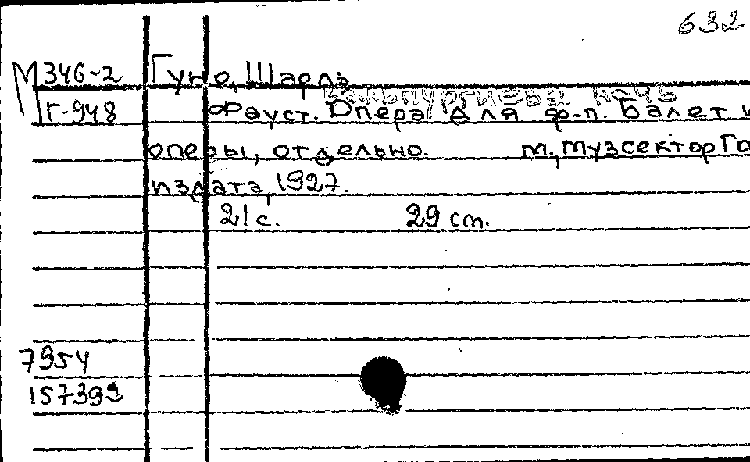 632
М346-2 Гуно, Шарль
Вальпургиева ночь
Г-948 Фауст. Опера для ф-п. Балет и
оперы, отдельно. М., Музсектор Го
издата, 1927.
21с. 29 cm.
7954